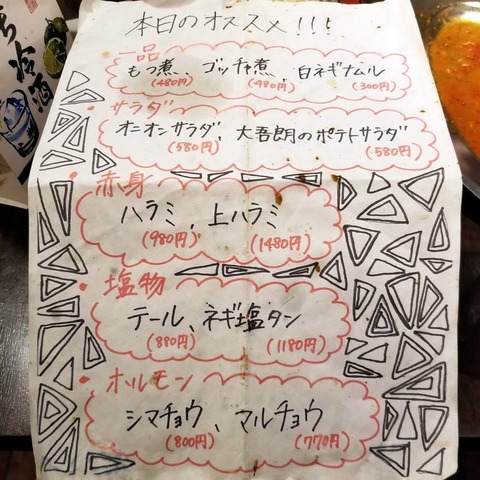 本日のオススメ!!!
一品
もつ煮、ゴッチャ煮、白ネギナムル
(480円) (480円) (300円)
・サラダ
オニオンサラダ、大吾朗のポテトサラダ
(580円) (580円)
・赤身
ハラミ、上ハラミ
(980円) (1480円)
・塩物
テール、ネギ塩タン
(880円) (1180円)
・ホルモン
シマチョウ、マルチョウ
(800円) (770円)
冷酒